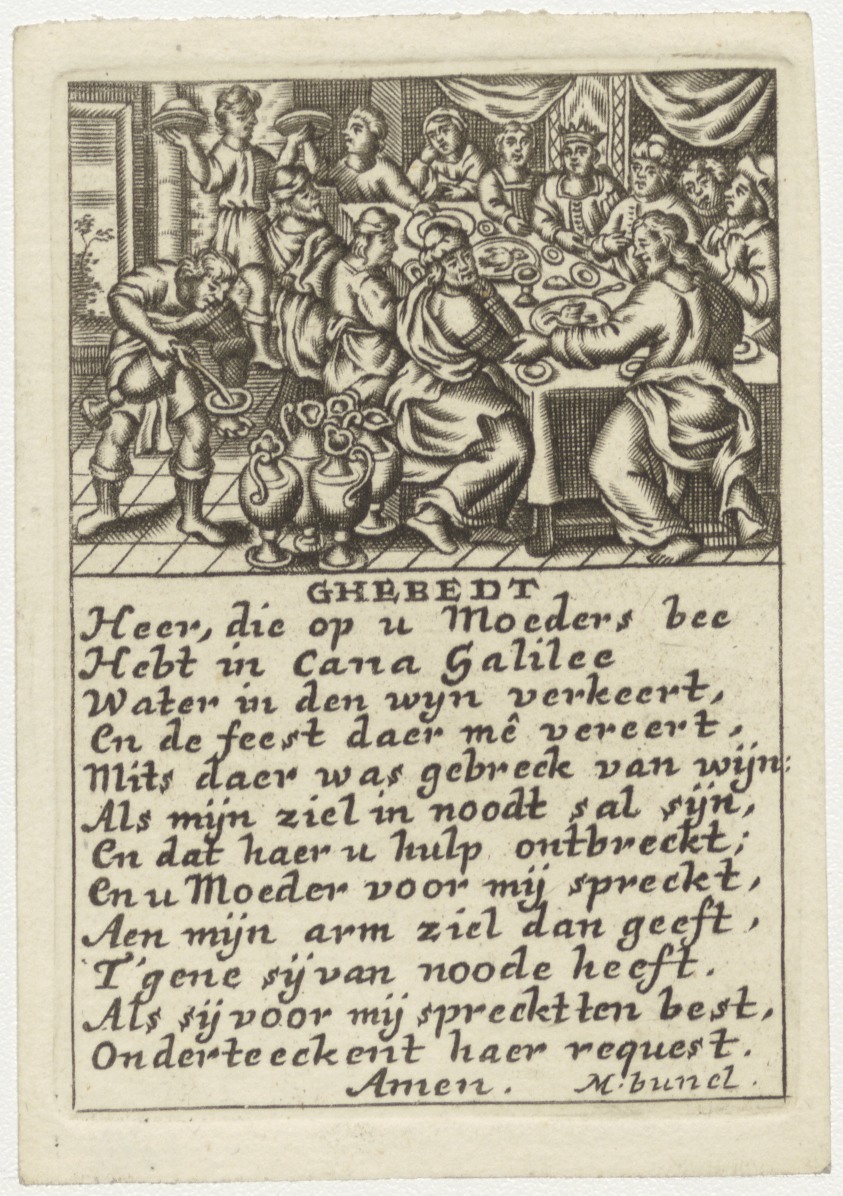 GHEBEDT
Heer, die op u Moeders bee
Hebt in Cana Galilee
Water in den wyn verkeert,
En de feest daer mê vereert,
Mits daer was gebreck van wijn:
Als mijn ziel in noodt sal sijn,
En dat haer u hulp ontbreckt;
En u Moeder voor mij spreckt,
Aen mijn arm ziel dan geeft,
T'gene sij van noode heeft.
Als sij voor mij spreckt ten best,
Onderteeckent haer request.
Amen. M. bunel.